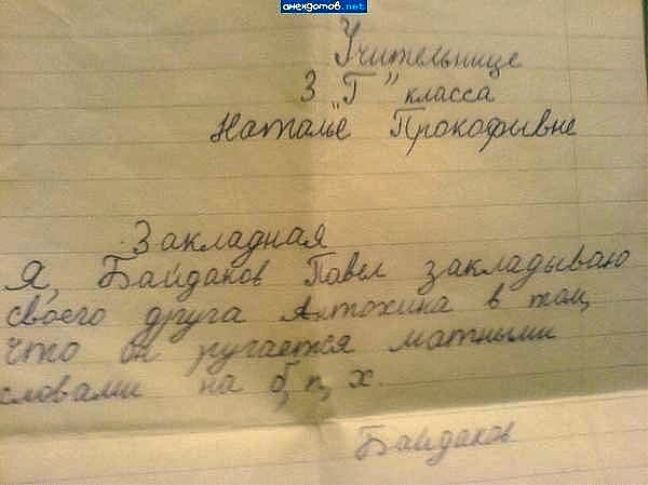 анекдотов.net
Учительнице
3 "Г" класса
Наталье Прокофывне
Закладная
Я, Байдаков Павел закладываю
своего друга Антохина в том,
что он ругается матными
словами на б, п, х.
Байдаков